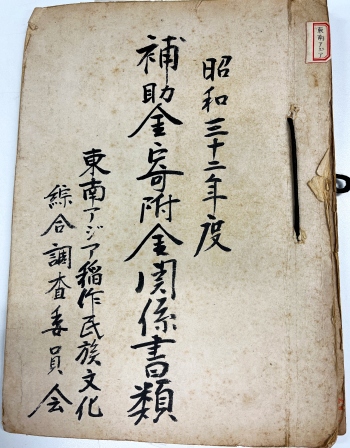 昭和三十二年度
補助金寄附金関係書類
東南アジア稲作民族文化
綜合調査委員会